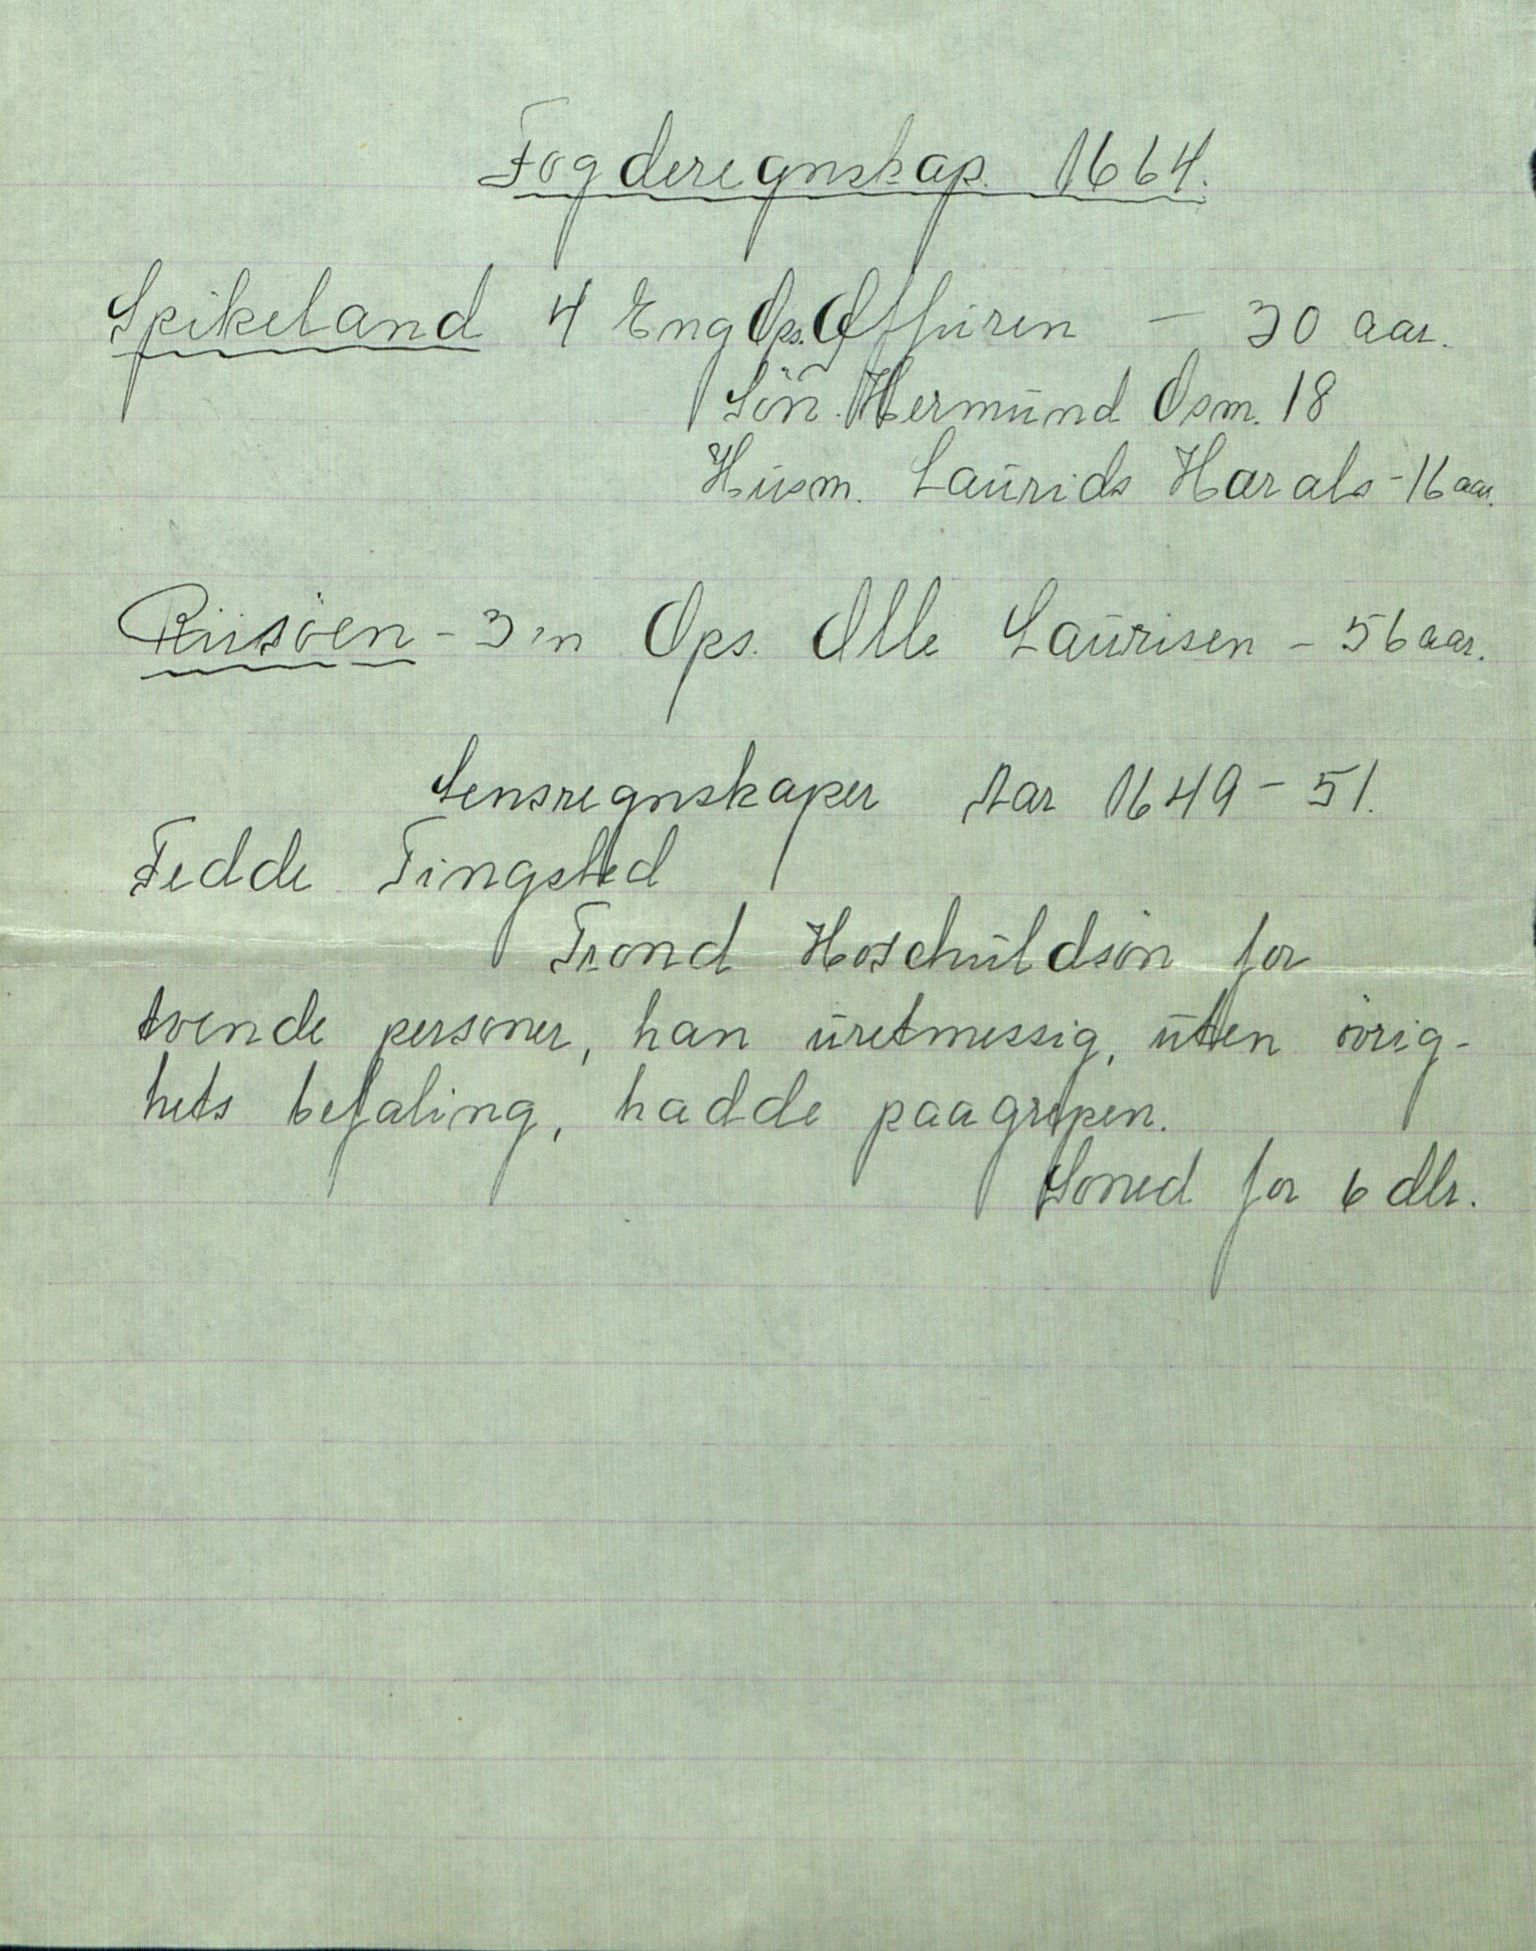 Fogderegnskap. 1664.
Spikeland 4 Eng Ops. Offuren — 30 aar.
Sön. Hermund Osm. 18
Husm. Laurids Harals - 16 aar.
Riisöen - 3 m Ops. Olle Laurisen - 56 aar.
Lensregnskaper Aar 1649 - 51.
Fedde Tingsted
Trond Hoschuldsön for
tvende personer, han uretmessig, uten övrig-
hets befaling, hadde paagrepen.
Soned for 6 dlr.